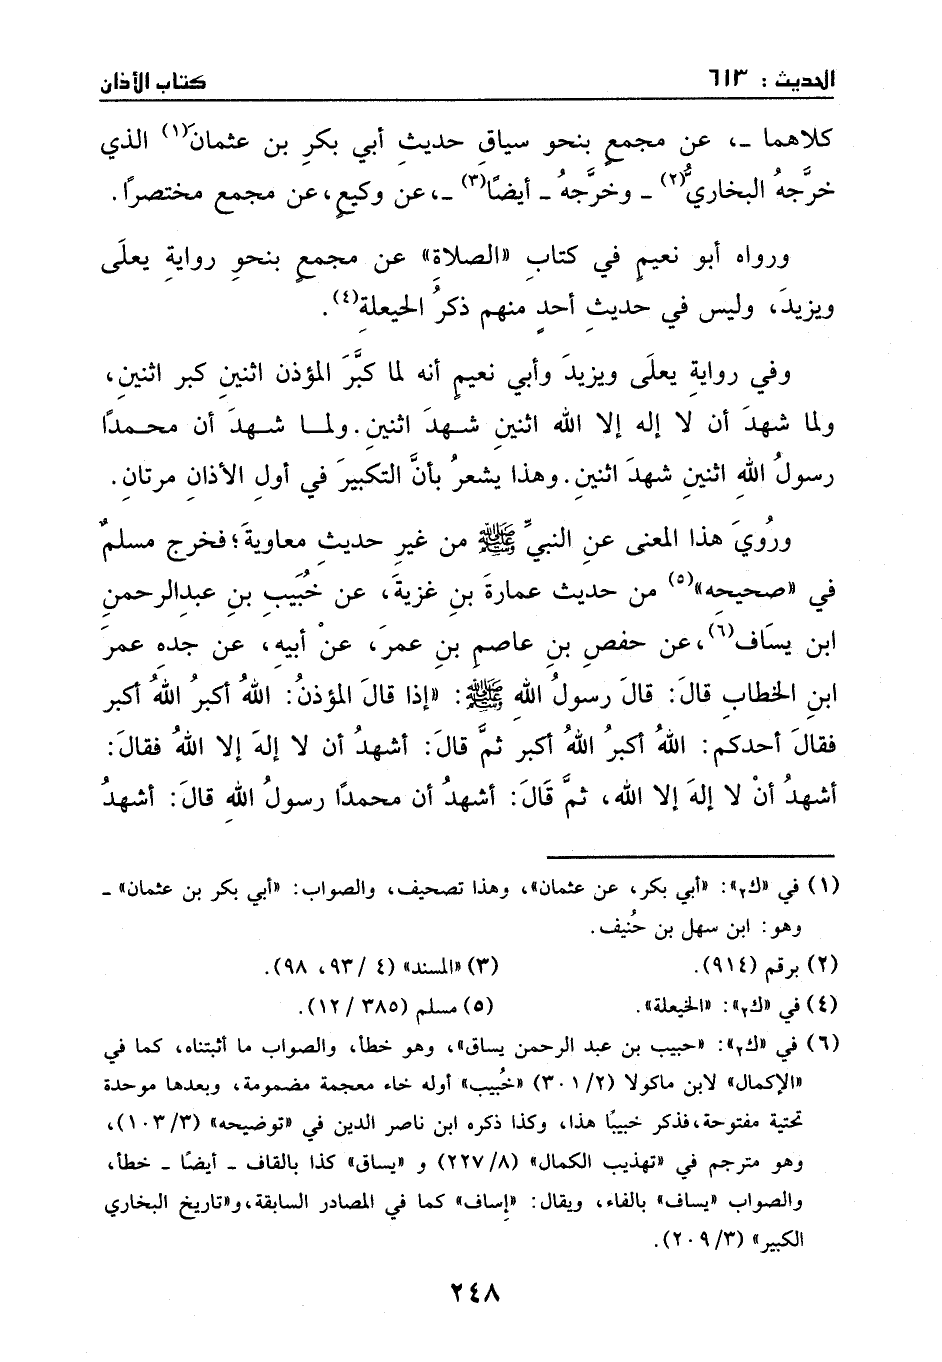 الحديث : ٦١٣
كتاب الأذان
كلاهما ـ، عن مجمعٍ بنحو سياقِ حديثِ أبي بكرِ بن عثمانَ(١) الذي
خرَّجهُ البخاريُّ(٢) ـ وخرَّجهُ ـ أيضًا(٣) ـ، عن وكيعٍ، عن مجمع مختصرًا.
ورواه أبو نعيمٍ في كتابِ «الصلاةِ» عن مجمعٍ بنحوِ روايةِ يعلَى
ويزيدَ، وليس في حديثِ أحدٍ منهم ذكرُ الحيعلةِ(٤).
وفي روايةِ يعلَى ويزيدَ وأبي نعيمٍ أنه لما كبَّرَ المؤذن اثنينِ كبر اثنينِ،
ولما شهدَ أن لا إله إلا الله اثنينِ شهدَ اثنينِ. ولما شهدَ أن محمدًا
رسولُ اللهِ اثنينِ شهدَ اثنينِ. وهذا يشعرُ بأنَّ التكبيرَ في أولِ الأذانِ مرتانِ.
ورُويَ هذا المعنى عنِ النبيِّ ﷺ من غيرِ حديثِ معاويةَ؛ فخرج مسلمٌ
في «صحيحِه»(٥) من حديث عمارةَ بنِ غزيةَ، عن خُبَيَبِ بنِ عبدالرحمنِ
ابن يسَاف(٦)، عن حفصِ بنِ عاصمِ بنِ عمرَ، عنْ أبيهِ، عن جدهِ عمرَ
ابنِ الخطابِ قالَ: قالَ رسولُ اللهِ ﷺ: «إذا قالَ المؤذنُ: اللهُ أكبرُ اللهُ أكبر
فقالَ أحدكم: اللهُ أكبرُ اللهُ أكبر ثمَّ قالَ: أشهدُ أن لا إلهَ إلا اللهُ فقالَ:
أشهدُ أنْ لا إلهَ إلا الله، ثمَّ قَالَ: أشهدُ أن محمدًا رسولُ اللهِ قالَ: أشهدُ
(١) في «ك٢»: «أبي بكر، عن عثمان»، وهذا تصحيف، والصواب: «أبي بكر بن عثمان» ـ
وهو: ابن سهل بن حُنيف.
(٢) برقم (٩١٤).
(٣) «المسند» (٤ /٩٣، ٩٨).
(٤) في «ك٢»: «الخيعلة».
(٥) مسلم (٣٨٥ /١٢).
(٦) في «ك٢»: «حبيب بن عبد الرحمن يساق»، وهو خطأ، والصواب ما أثبتناه، كما في
«الإكمال» لابن ماكولا (٣٠١/٢) «خُبيب» أوله خاء معجمة مضمومة، وبعدها موحدة
تحتية مفتوحة، فذكر خبيبًا هذا، وكذا ذكره ابن ناصر الدين في «توضيحه» (١٠٣/٣)،
وهو مترجم في «تهذيب الكمال» (٢٢٧/٨) و «يساق» كذا بالقاف ـ أيضًا ـ خطأ،
والصواب «يساف» بالفاء، ويقال: «إِساف» كما في المصادر السابقة، و«تاريخ البخاري
الكبير» (٢٠٩/٣).
٢٤٨